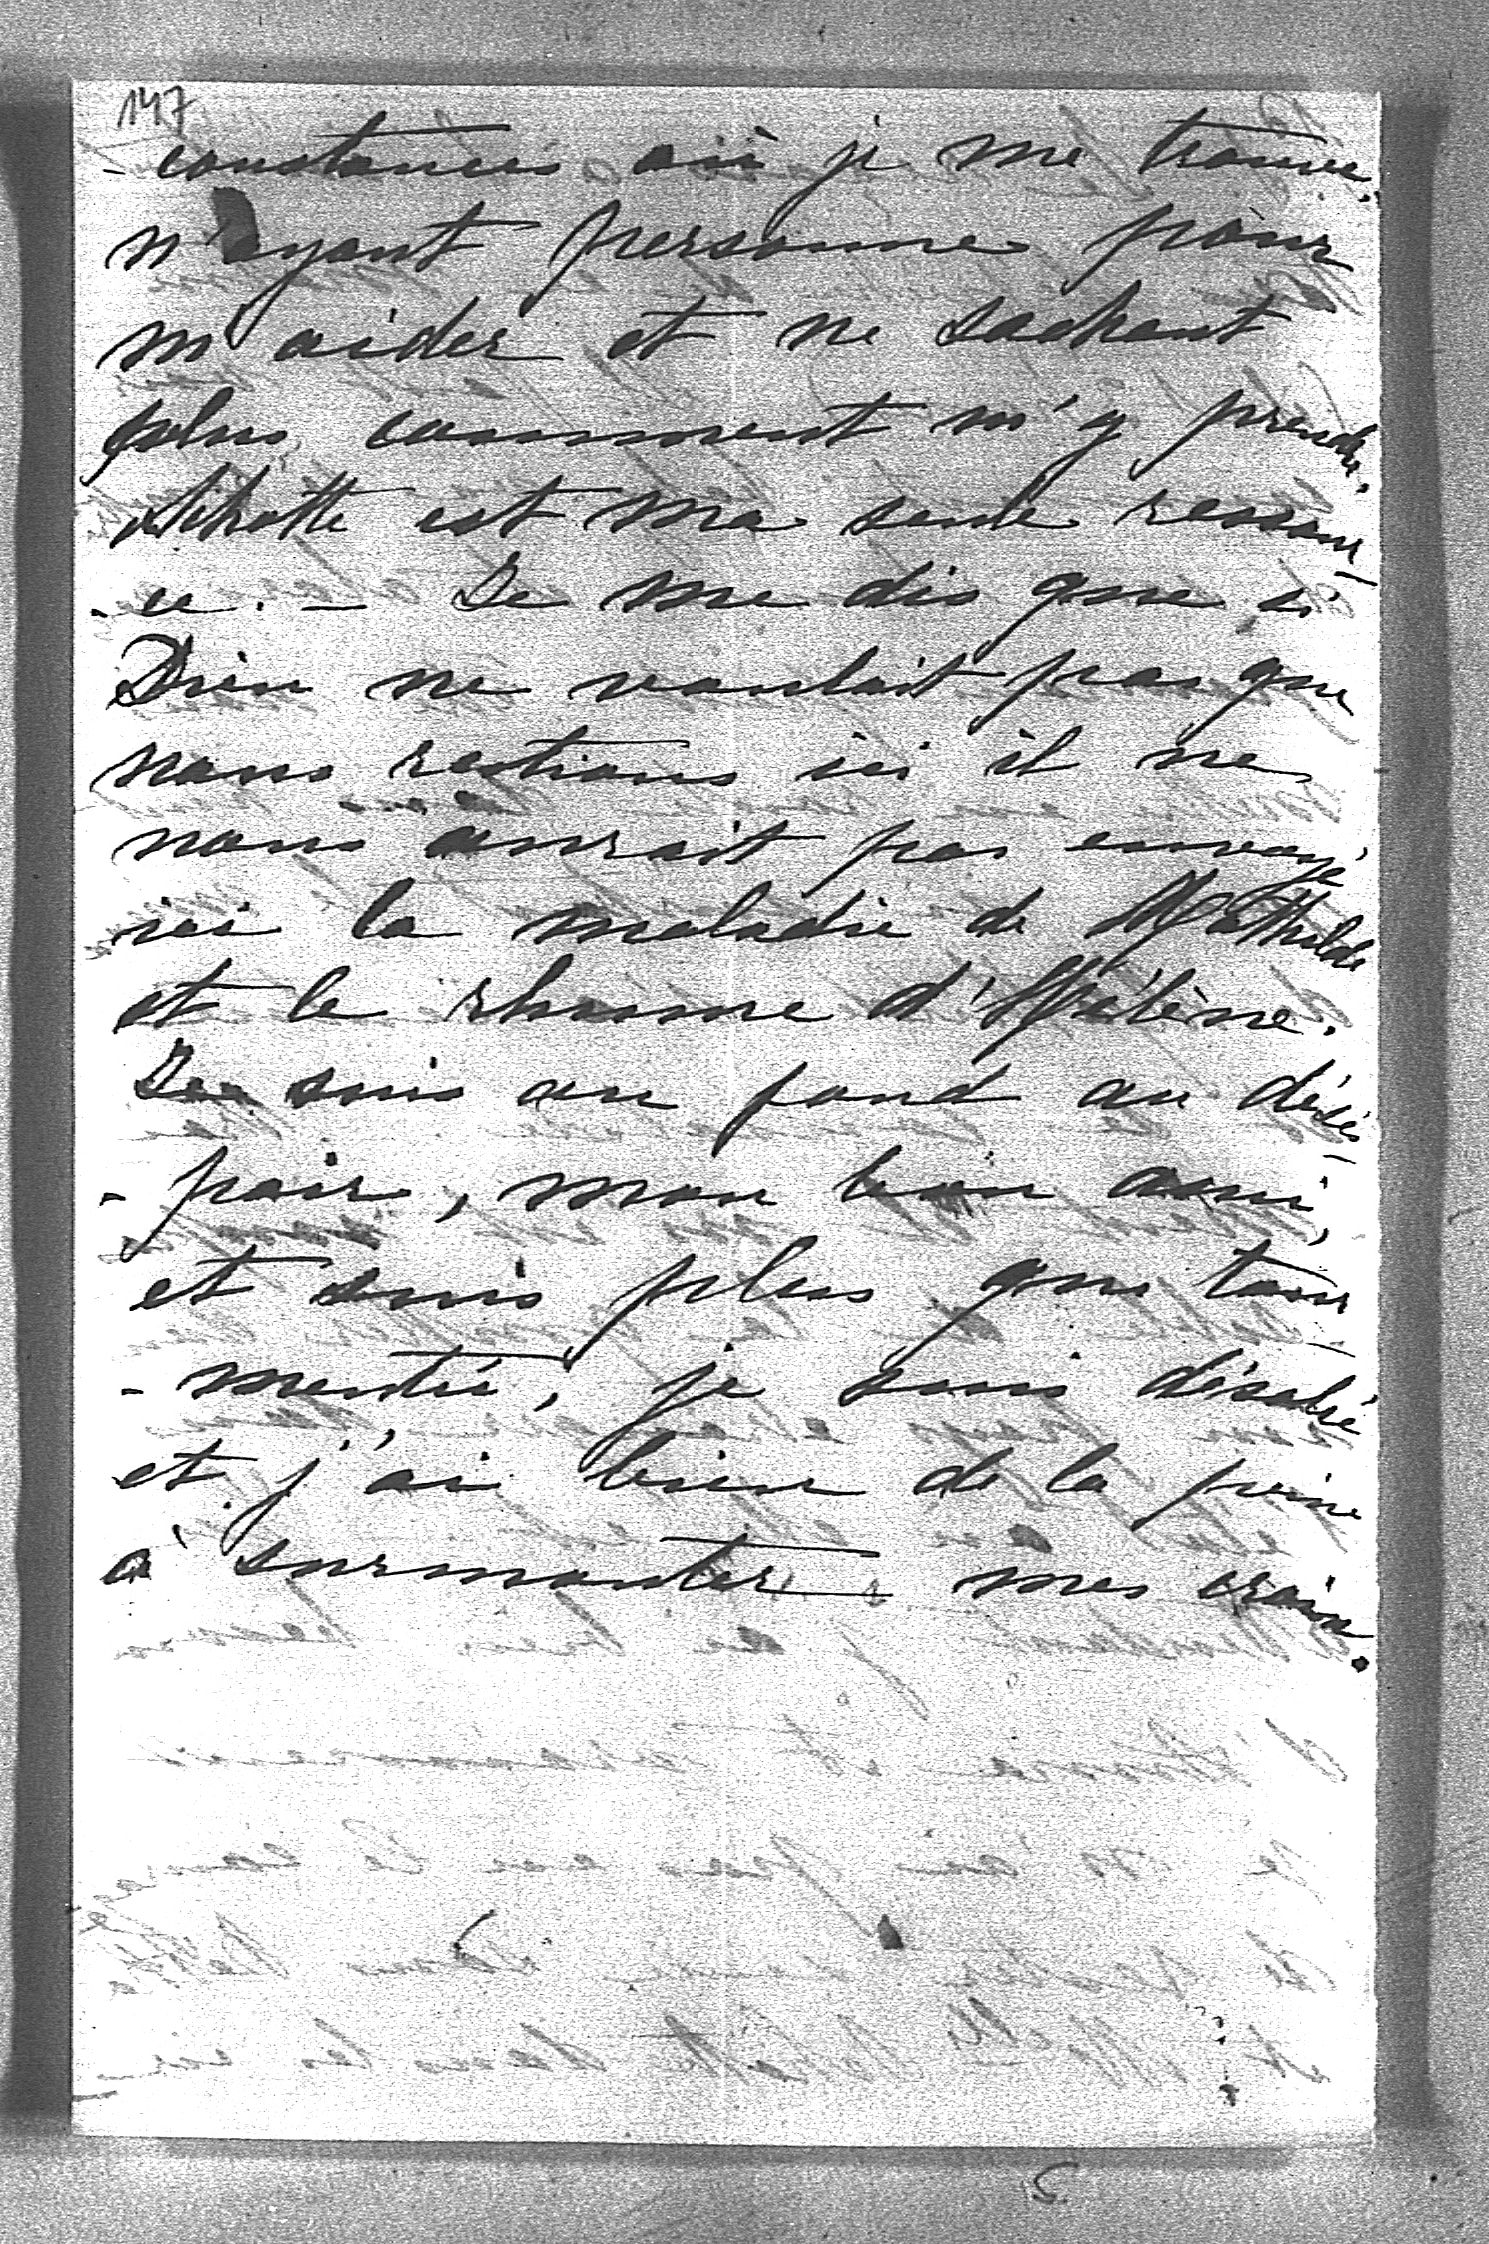 147
- constances où je me trouve.
n'ayant personne pour
m'aider et ne sachant
plus comment m'y prendre.
est ma seule ressour
- ce. - Je me dis que si
Dieu ne voulait pas que
nous restions ici il ne
nous aurait pas envoyé
ici la maladie de Mathilde
et le rhume d'Hélène.
Je suis au fond au déses
- poir, mon bon ami,
et suis plus que tour
- mentée, je suis désolée
et j'ai bien de la peine
à surmonter mes crain.